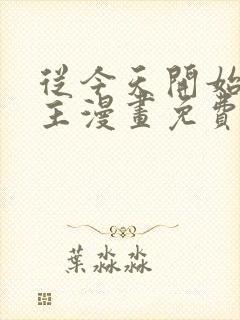 從今天開始
主漫畫免費
葉淼淼